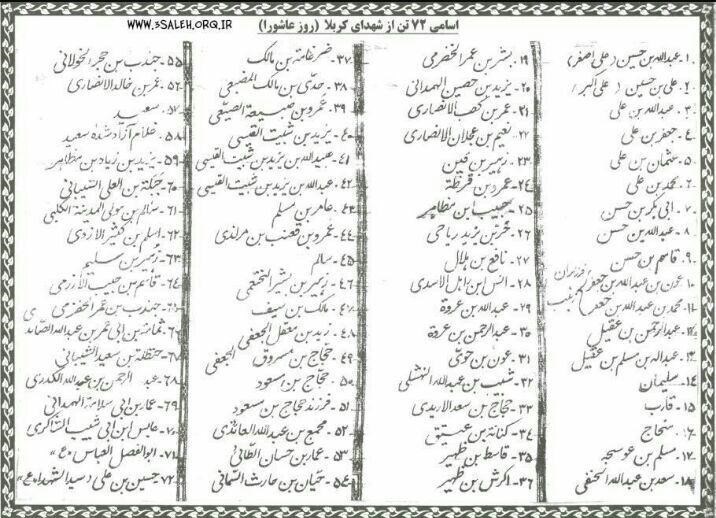 WWW.3SALEH.ORG.IR
اسامی ۷۲ تن از شهدای کربلا (روز عاشورا)
۱- عبدالله بن حسین (علی اصغر)
۲- علی بن حسین (علی اکبر)
۳- عبدالله بن علی
۴- جعفر بن علی
۵- عثمان بن علی
۶- محمد بن علی
۷- ابی بکر بن حسن
۸- عبدالله بن حسن
۹- قاسم بن حسن
۱۰- عون بن عبدالله بن جعفر فرزندان
۱۱- محمد بن عبدالله بن جعفر زینب
۱۲- عبدالرحمن بن عقیل
۱۳- عبداله بن مسلم بن عقیل
۱۴- سلیمان
۱۵- قارب
۱۶- منحاج
۱۷- مسلم بن عوسجه
۱۸- سعد بن عبدالله الحنفی
۱۹- بشر بن عمر الحضرمی
۲۰- یزید بن حصین الهمدانی
۲۱- عمر بن کعب الانصاری
۲۲- نعیم بن عجلان الانصاری
۲۳- زهیر بن قین
۲۴- عمرو بن قرظة
۲۵- حبیب ابن مظاهر
۲۶- حر بن یزید ریاحی
۲۷- نافع بن هلال
۲۸- انس ابن کاهل الاسدی
۲۹- عبدالله بن عروة
۳۰- عبدالرحمن بن عروة
۳۱- عون بن حوی
۳۲- شبیب بن عبدالله النهشلی
۳۳- حجاج بن سعد
۳۴- کنانة بن عتیق
۳۵- قاسط بن ظهیر
۳۶- کرش بن ظهیر
۳۷- ضرغامة بن مالک
۳۸- بن مالک
۳۹- عمرو بن ضبیعة الضبیعی
۴۰- یزید بن ثبیت القیسی
۴۱- عبیدالله بن یزید بن ثبیت القیسی
۴۲- عبدالله بن یزید بن ثبیت القیسی
۴۳- عامر بن مسلم
۴۴- عمرو بن قعنب بن
۴۵- سالم
۴۶- زهیر بن بشر الخثعمی
۴۷- مالک بن سیف
۴۸- زید بن معقل الجعفی
۴۹- حجاج بن مسروق الجعفی
۵۰- حجاج بن مسعود
۵۱- فرزند حجاج بن مسعود
۵۲- مجمع بن عبدالله العائذی
۵۳- عمار بن حسان الطائی
۵۴- حیان بن حارث السلمانی
۵۵- جندب بن حجر الخولانی
۵۶- عمر بن خالد الانصاری
۵۷- سعید
۵۸- غلام آزاد شده سعید
۵۹- یزید بن زیاد بن مظاهر
۶۰- جبلة بن العلی الشیبانی
۶۱- سالم بن مولی المدینة الکلبی
۶۲- اسلم بن کثیر الازدی
۶۳- زهیر بن سلیم
۶۴- قاسم بن حبیب الازدی
۶۵- جندب بن عمر الحضرمی
۶۶- ثمامة بن ابی عمر بن عبدالله
۶۷- حنظلة بن سعید الشیبانی
۶۸- عبد الرحمن بن عبدالله الکدری
۶۹- عمار بن ابی سلامة الهمدانی
۷۰- عابس ابن ابی شبیب الشاکری
۷۱- ابوالفضل العباس «ع»
۷۲- حسین بن علی (سیدالشهداء «ع»